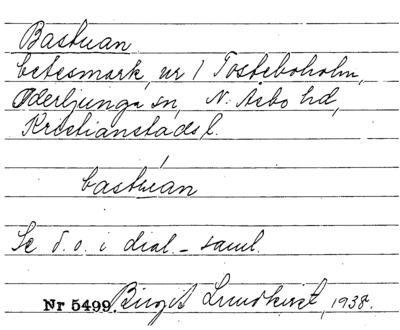 Bastuan
betesmark, nr 1 Tosteboholm,
Oderljunga sn, N. Åsbo hd,
Kristianstads l.
bastuan
Se d. o. i dial. - saml.
Nr 5499. Birgit Lundkvist, 1938.